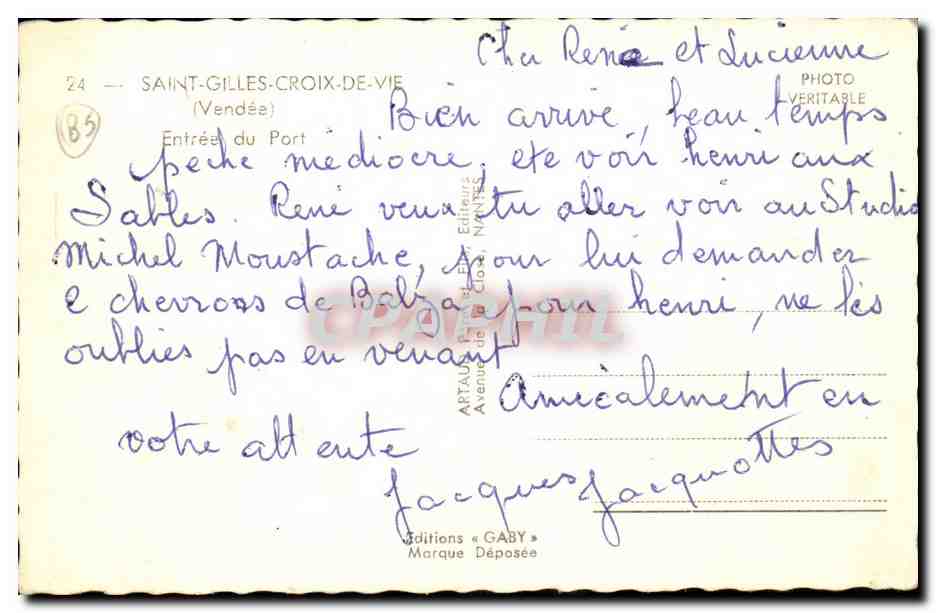 Cher René et Lucienne
24 — SAINT-GILLES-CROIX-DE-VIE
(Vendée)
Entrée du Port
PHOTO
VERITABLE
85
Bien arrivé, beau temps
pêche médiocre, été voir henri aux
Sables. René veux tu aller voir au Studio
Michel Moustache, pour lui demander
2 chevrons de Balza pour henri, ne les
oublies pas en venant
Amicalement en
votre attente
Jacques Jacquottes
ARTAUD Père et Fils, Editeurs
Avenue de la Close, NANTES
CPAPHIL
Editions « GABY »
Marque Déposée